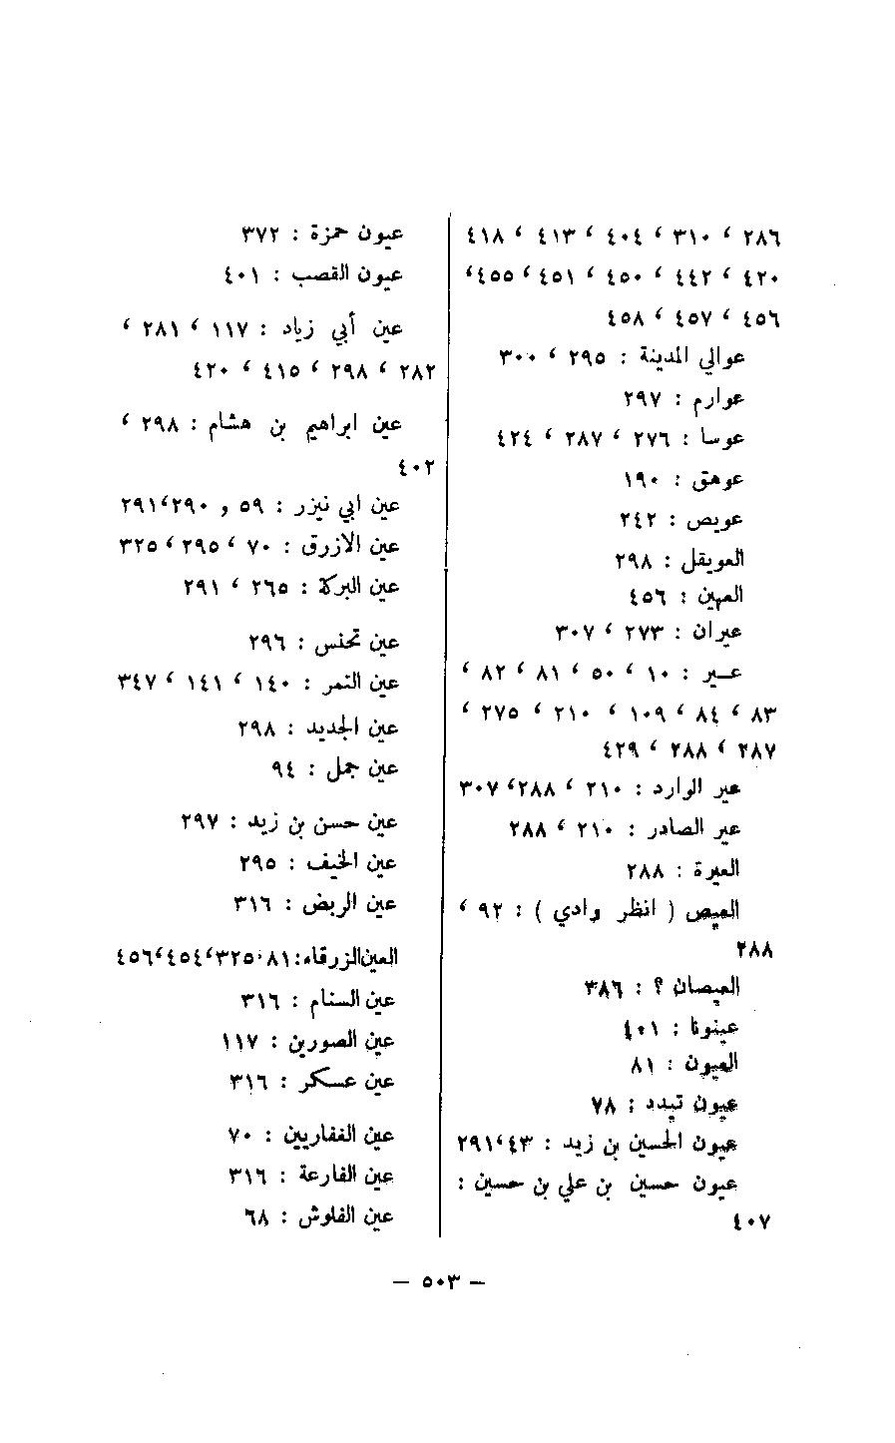 ٢٨٦ ، ٣١٠ ، ٤٠٤ ، ٤١٣ ، ٤١٨
٤٢٠ ، ٤٤٢ ، ٤٥٠ ، ٤٥١ ، ٤٥٥،
٤٥٦ ، ٤٥٧ ، ٤٥٨
عوالي المدينة : ٢٩٥ ، ٣٠٠
عوارم : ٢٩٧
عوسا : ٢٧٦ ، ٢٨٧ ، ٤٢٤
عوهق : ١٩٠
عويص : ٢٤٢
العويقل : ٢٩٨
العهين : ٤٥٦
عيران : ٢٧٣ ، ٣٠٧
عـير : ١٠ ، ٥٠ ، ٨١ ، ٨٢ ،
٨٣ ، ٨٤ ، ١٠٩ ، ٢١٠ ، ٢٧٥ ،
٢٨٧ ، ٢٨٨ ، ٤٢٩
عير الوارد : ٢١٠ ، ٢٨٨، ٣٠٧
عير الصادر : ٢١٠ ، ٢٨٨
العيرة : ٢٨٨
العيص ( انظر وادي ) : ٩٢ ،
٢٨٨
العيصان ؟ : ٣٨٦
عينونا : ٤٠١
العيون : ٨١
عيون تيدد : ٧٨
عيون الحسين بن زيد : ٤٣، ٢٩١
عيون حسين بن علي بن حسين :
٤٠٧
عيون حمزة : ٣٧٢
عيون القصب : ٤٠١
عين أبي زياد : ١١٧ ، ٢٨١ ،
٢٨٢ ، ٢٩٨ ، ٤١٥ ، ٤٢٠
عين ابراهيم بن هشام : ٢٩٨ ،
٤٠٢
عين ابي نيزر : ٥٩ و ٢٩٠، ٢٩١
عين الازرق : ٧٠ ، ٢٩٥ ، ٣٢٥
عين البركة : ٢٦٥ ، ٢٩١
عين تحنس : ٢٩٦
عين التمر : ١٤٠ ، ١٤١ ، ٣٤٧
عين الجديد : ٢٩٨
عين جمل : ٩٤
عين حسن بن زيد : ٢٩٧
عين الخيف : ٢٩٥
عين الربض : ٣١٦
العين الزرقاء: ٨١، ٣٢٥، ٤٥٤، ٤٥٦
عين السنام : ٣١٦
عين الصورين : ١١٧
عين عسكر : ٣١٦
عين الغفاريين : ٧٠
عين الفارعة : ٣١٦
عين الفلوش : ٦٨
— ٥٠٣ —